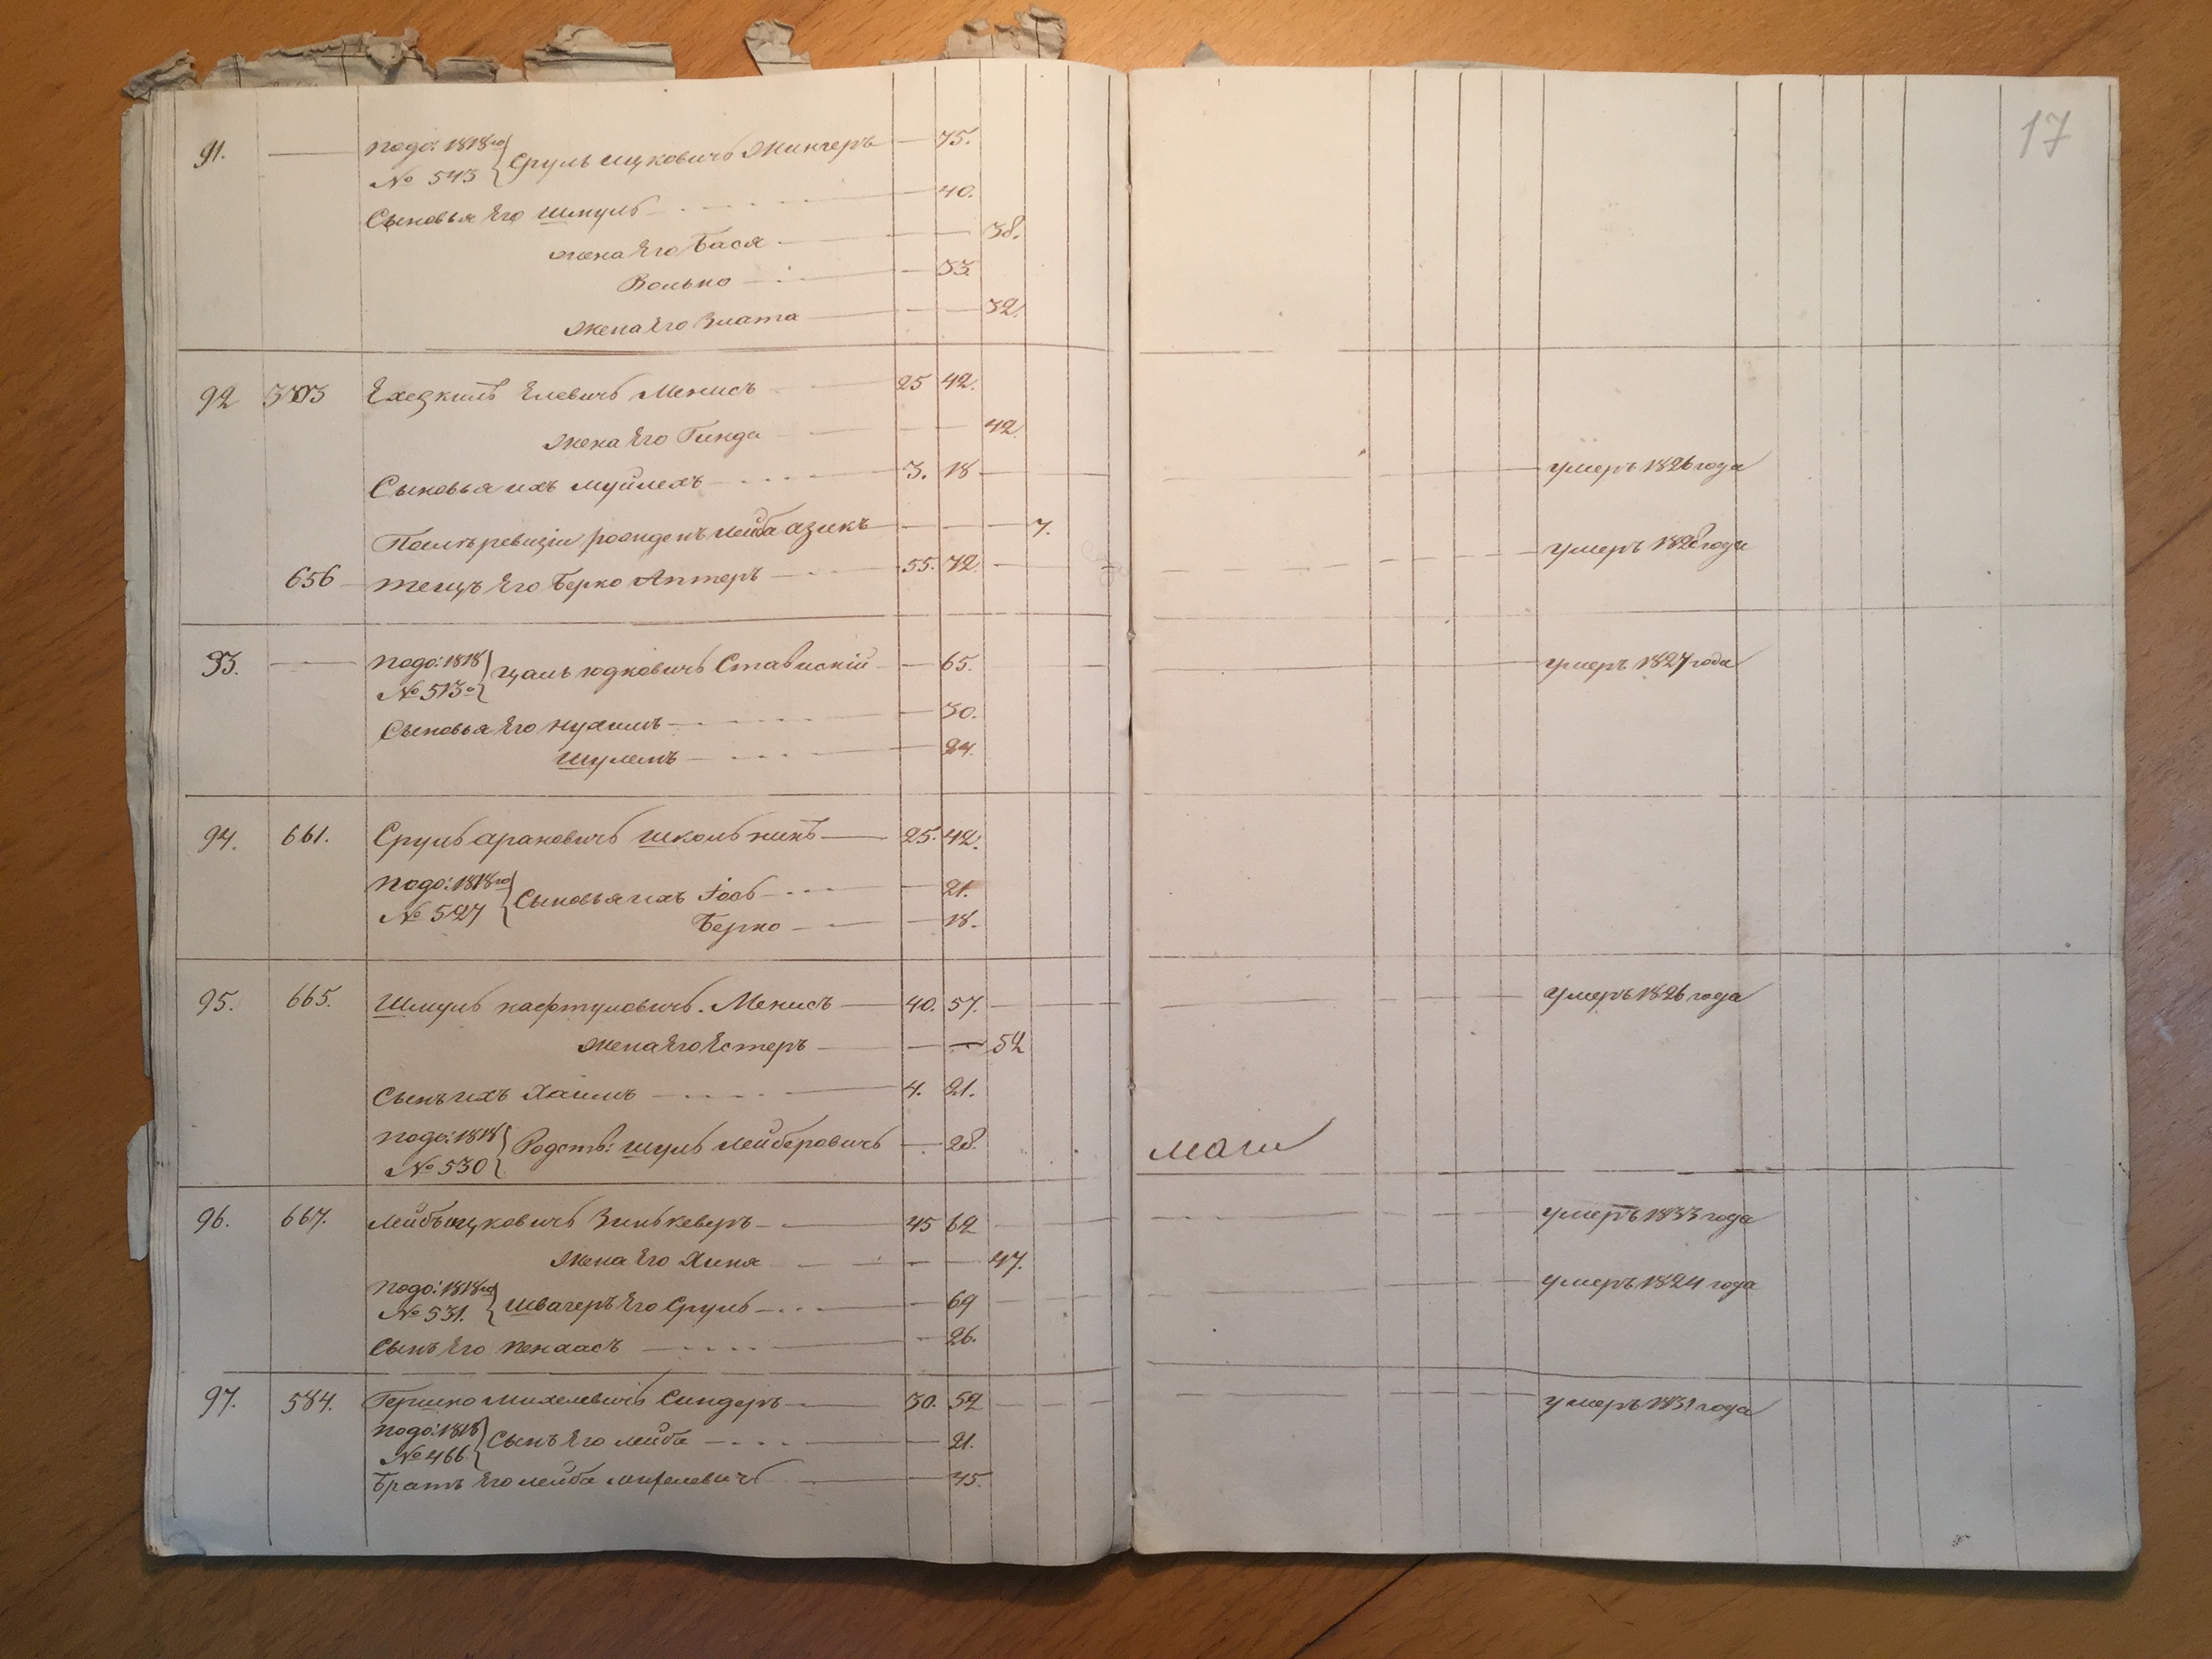 17
91. подо: 1818го № 543 Сруль Ицковичъ Жингеръ 75.
Сыновья Его Шмуль 40.
жена Его Бася 38.
Волько 33.
жена Его Злата 32.
92 Ехезкиль Елевичъ Менисъ 25 42.
Жена Его Гинда 42.
Сыновья ихъ Муйлехъ 3. 18 умеръ 1826 года
После ревизіи рожденъ Лейба азикъ 7.
656 тещъ Его Берко Аптеръ 55. 72 умеръ года
93. подо: 1818 № 513 Цаль Юдковичъ Ставискій 65. умеръ 1827 года
Сыновья Его Нухимъ 30.
Шулемъ 24.
94. 661. Сруль Арановичъ Школьникъ 25. 42.
подо: 1818го № 527 Сыновья ихъ Іось 21.
Берко 18.
95. 665. Шмуль нафтуловичъ. Менисъ 40. 57. умеръ 1826 года
жена Его Естеръ 52
Сынъ ихъ Хаимъ 4. 21.
подо: 1818 № 530 Родств: Шуль Лейберовичъ 28.
96. 667. Лейбъ ицковичъ Зинькеверъ 45 62 умеръ 1833 года
Жена Его Хиня 47.
подо: 1818го № 531. Швагеръ Его Сруль 69 умеръ 1824 года
Сынъ Его Пенхасъ 26.
97. 584. Гершко Михелевичъ Синдеръ 30. 52 умеръ 1831 года
подо: 1818 № 466 Сынъ Его Лейба 21.
Братъ Его Лейба Михелевичъ 45.